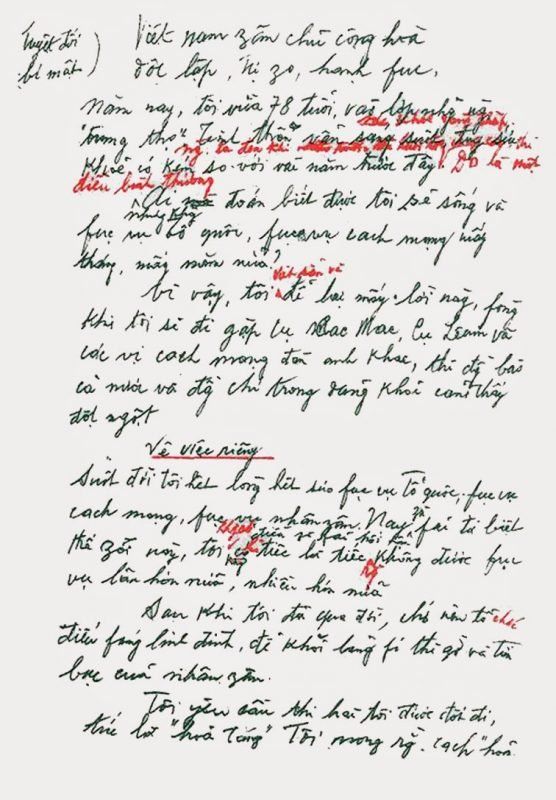 Tuyệt đối
bí mật
Việt nam zân chủ cộng hoà
độc lập, tự zo, hạnh fúc,
Năm nay, tôi vừa 78 tuổi, vào lớp những người
"trung thọ". Tinh thần vẫn sáng suốt,
khoẻ có kém so với vài năm trước đây. Đó là một
điều bình thường
Ai mà đoán biết được tôi sẽ sống và
fục vụ tổ quốc, fục vụ cách mạng mấy
tháng, mấy năm nữa?
viết sẵn và
Vì vậy, tôi để lại mấy lời này, fòng
khi tôi sẽ đi gặp cụ Các Mác, cụ Lênin và
các vị cách mạng đàn anh khác, thì đồng bào
cả nước và đ/c đồng chí trong đảng khỏi cảm thấy
đột ngột.
Về việc riêng
Suốt đời tôi hết lòng hết sức fục vụ tổ quốc, fục vụ
cách mạng, fục vụ nhân zân. Nay zù fải từ biệt
thế zới này, tôi không có điều gì fải hối hận
chỉ tiếc là tiếc rằng không được fục
vụ lâu hơn nữa, nhiều hơn nữa
Sau khi tôi đã qua đời, chớ nên tổ chức
điếu fúng linh đình, để khỏi lãng fí thì giờ và tiền
bạc của nhân zân.
Tôi yêu cầu thi hài tôi được đốt đi,
tức là "hoả táng" Tôi mong rằng cách "hoả